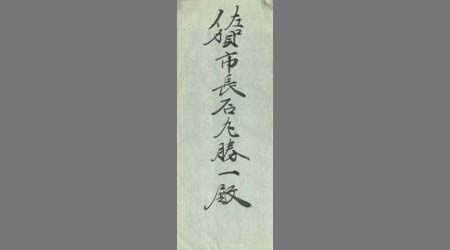 佐賀市長石丸勝一殿